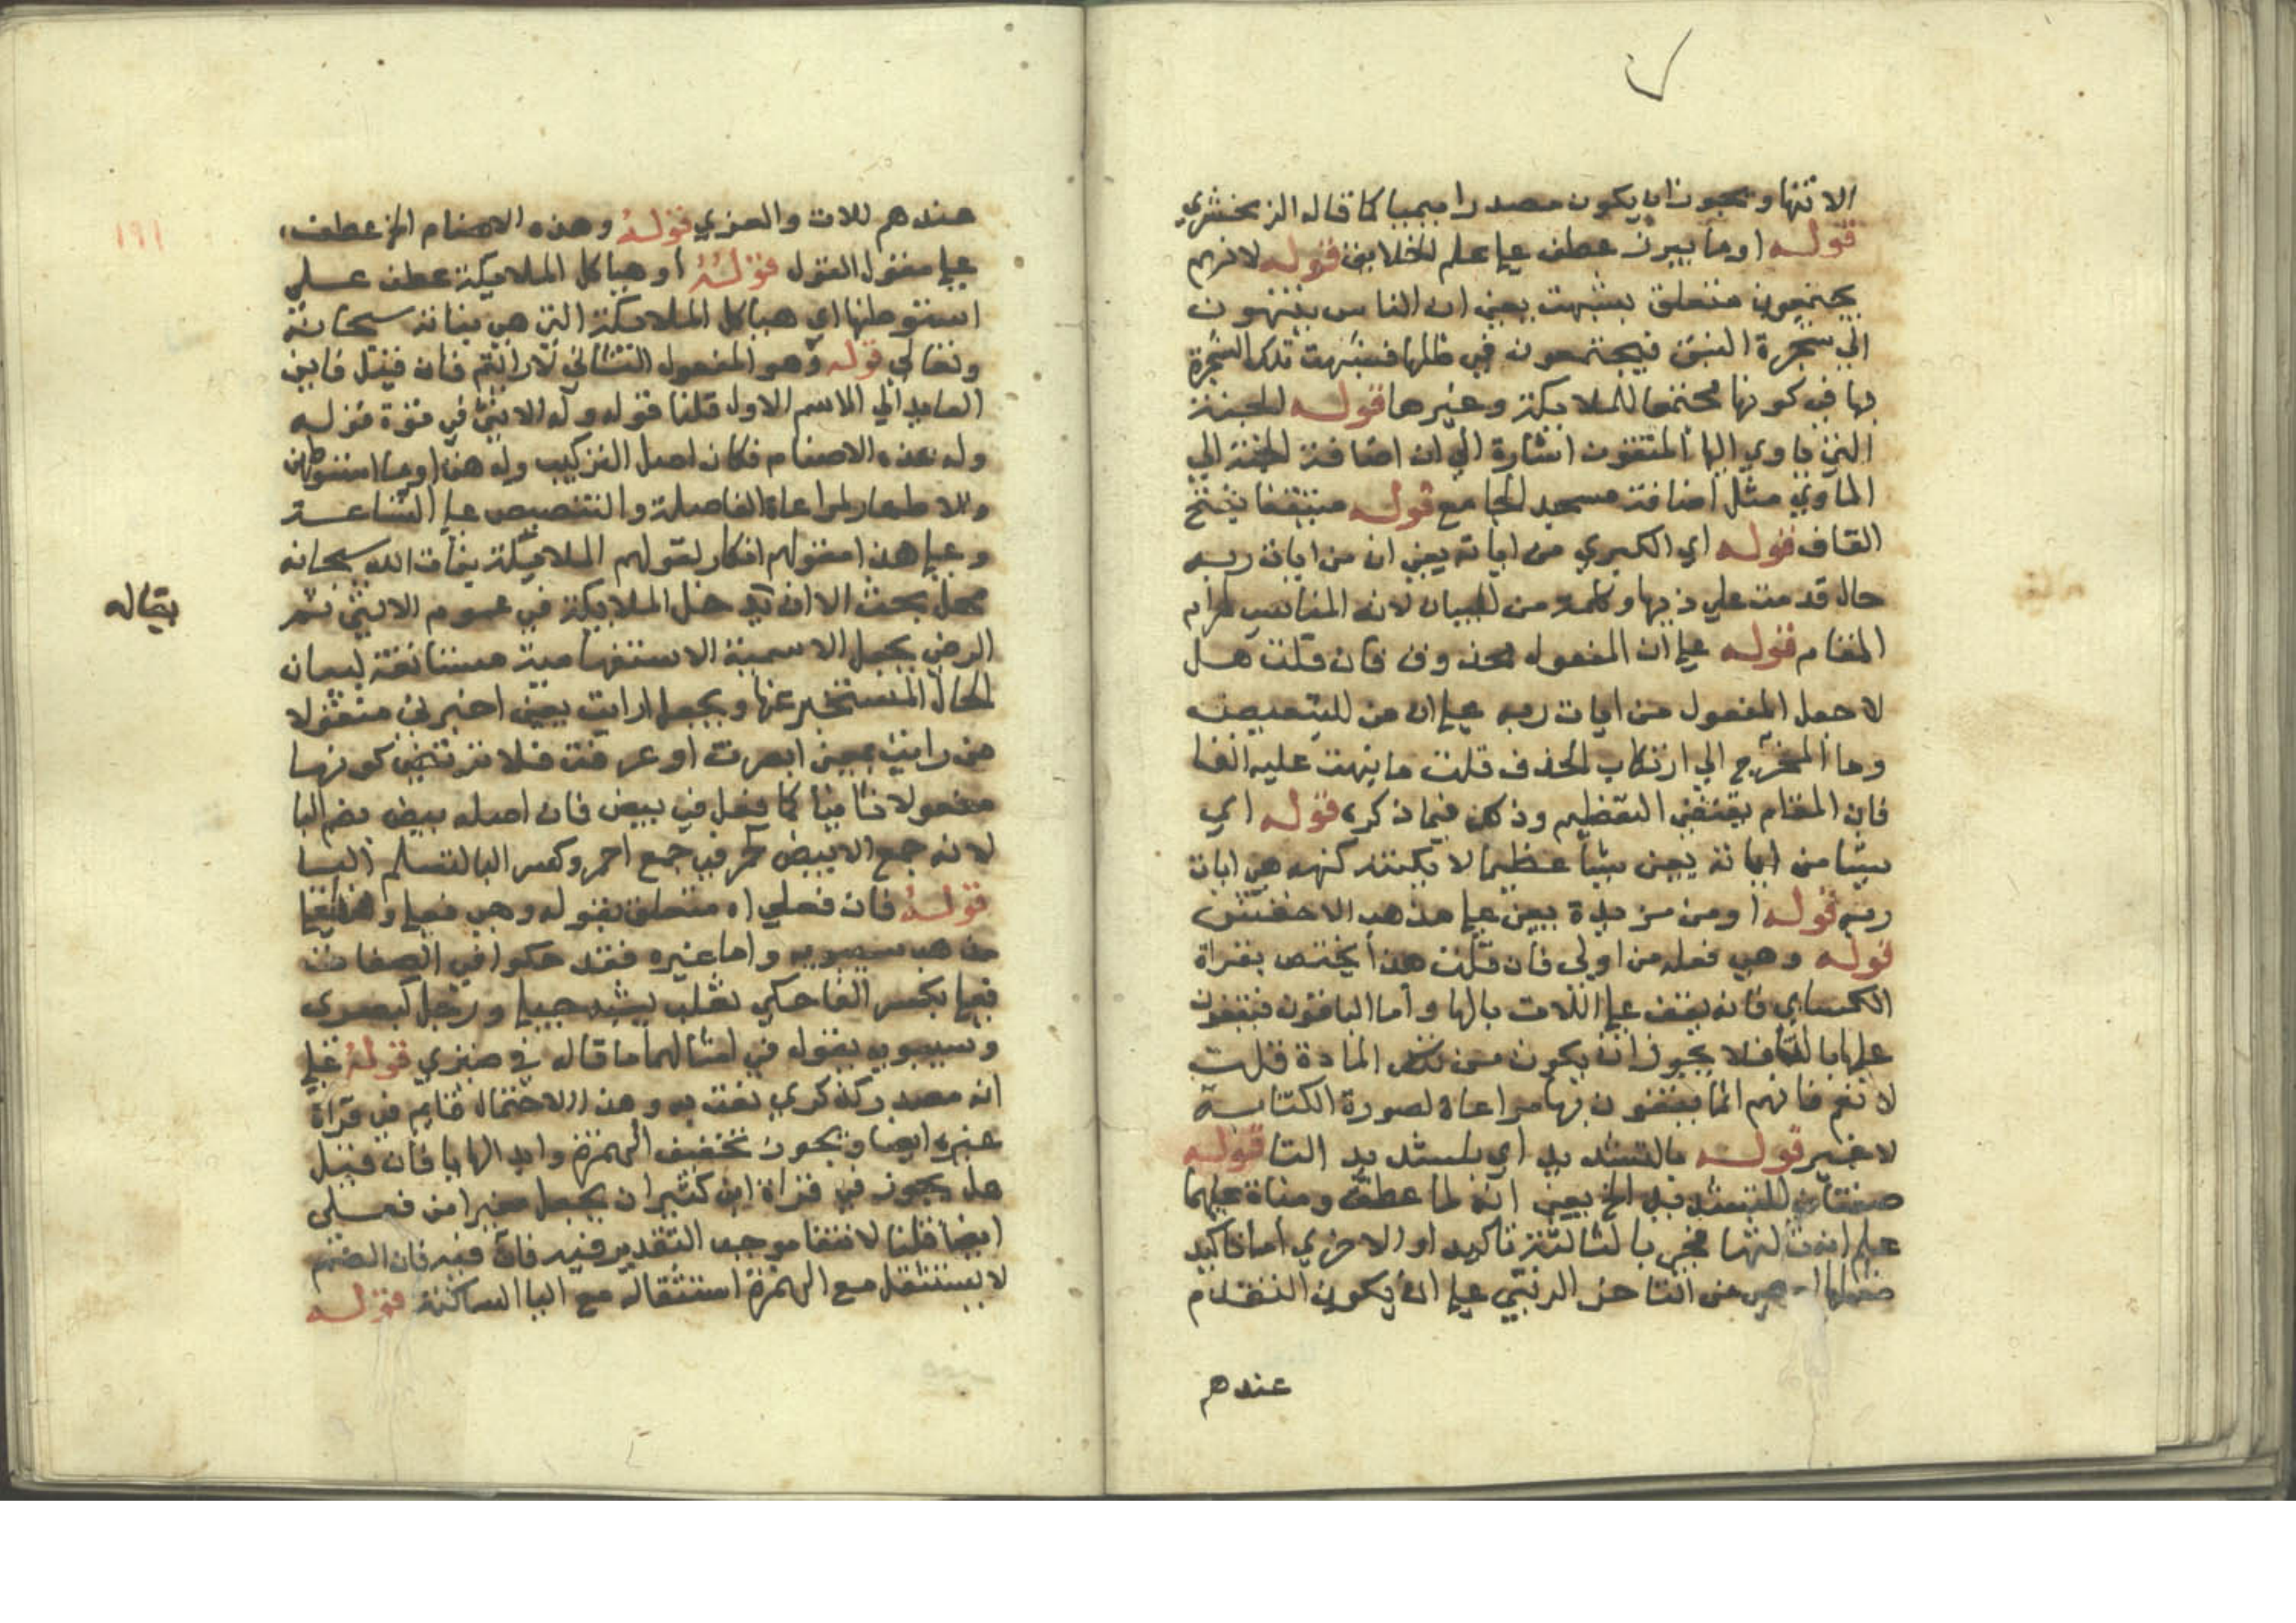 الانتها ويجوز ان يكون مصدرا ميميا كما قاله الزمخشري
قوله او ما يبرز عطف على علم الخلايق قوله لانهم
يجتمعون متعلق بشبهت يعني ان الناس ينتهون
الى شجرة النبق فيجتمعون في ظلها فشبهت تلك الشجرة
بها في كونها مجتمعا للملايكة وغيرها قوله الجنة
التي ياوي اليها المتقون اشارة الى ان اضافة الجنة الى
الماوى مثل اضافة مسجد الجامع قوله منتقنا بفتح
القاف قوله اي الكبرى من اياته يعني ان من ايات ربه
حال قدمت على ذيها وكلمة من للبيان لانه المناسب لمرام
المقام قوله على ان المفعول محذوف فان قلت هل
لا جعل المفعول من ايات ربه على ان من للتبعيض
وما المخرج الى ارتكاب الحذف قلت ما ينهت عليه انفا
فان المقام يقتضي التعظيم وذلك فيما ذكره قوله اي
شيئا من اياته يعني شيئا عظيما لا يكتنه كنهه من ايات
ربه قوله او من مزيدة يعني على مذهب الاخفش
قوله وهي فعله من لوى فان قلت هذا يختص بقراة
الكسائي فانه يقف على اللات بالها واما الباقون فيقفون
عليها بالتا فلا يجوز ان يكون من تلك المادة قلت
لا نعم فانهم انما يقفون بها مراعاة لصورة الكتابة
لا غير قوله بالتشديد اي بتشديد التا قوله
صفتان للتشديد الخ يعني انه لما عطف ومناة عليهما
علم انها ثالثتها فجي بالثالثة تاكيد او الاخرى اما تاكيد
هي من التاخر الرتبي على ان يكون التقدم
عندهم
عندهم للات والعزي قوله وهذه الاصنام الخ عطف
على مفعول القول قوله او هياكل الملايكة عطف على
استوطنها اي هياكل الملايكة التي هي بناته سبحانه
وتعالى قوله وهو المفعول الثاني لارايتم فان قيل فاين
العايد الى الاسم الاول قلنا قوله وله الانثى في قوة قوله
وله هذه الاصنام فكان اصل التركيب وله هن او ما استوطنهن
والاظهار لمراعاة الفاصلة والتنصيص على الشناعة
وعلى هذا معقولهم انكار لقولهم الملايكة بنات الله سبحانه
محل بحث الا ان يدخل الملايكة في عموم الانثى ثم
يقاله
الرضي يجعل الاسمية الاستفهامية مستانفة لبيان
الحال المستخبر عنها ويجعل ارايت بمعنى اخبرني منقولا
من رايت بمعنى ابصرت او عرفت فلا يرتضي كونها
مفعولا ثانيا كما فعل في بيض فان اصله بيض بضم البا
لانه جمع الابيض كحمر في جمع احمر وكسر البا لتسلم اليا
قوله فان فعلى اه متعلق بقوله وهي فعلى وهذا على
مذهب سيبويه واما غيره فقد حكوا في الصفات
فعلى بكسر الفا حكى ثعلب مشية حيكى ورجل كيصى
وسيبويه يقول في امثالهما ما قاله في ضيزي قوله على
انه مصدر كذكرى نعت به وهذا الاحتمال قايم في قراة
غيره ايضا ويجوز تخفيف الهمزة وابدالها يا فان قيل
هل يجوز في قراة ابن كثير ان يجعل مغيرا من فعلى
ايضا قلنا لانتفا موجب التقدير فيه فانه فيه فان الضم
لا يستثقل مع الهمزة استثقاله مع اليا الساكنة قوله
١٩١